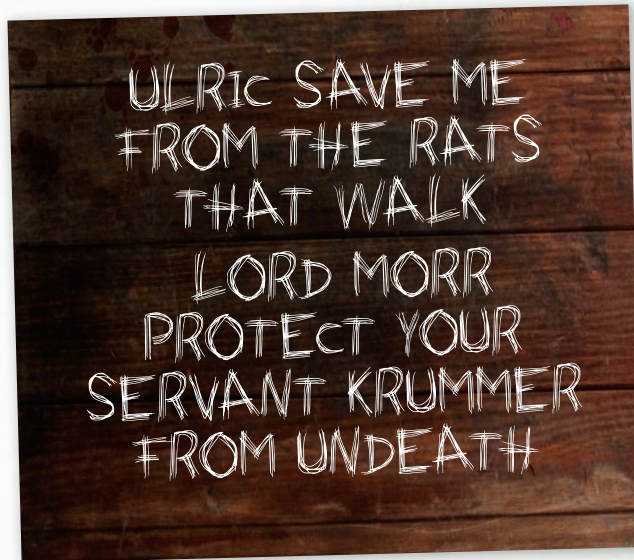 ULRIC SAVE ME
FROM THE RATS
THAT WALK
LORD MORR
PROTECT YOUR
SERVANT KRUMMER
FROM UNDEATH